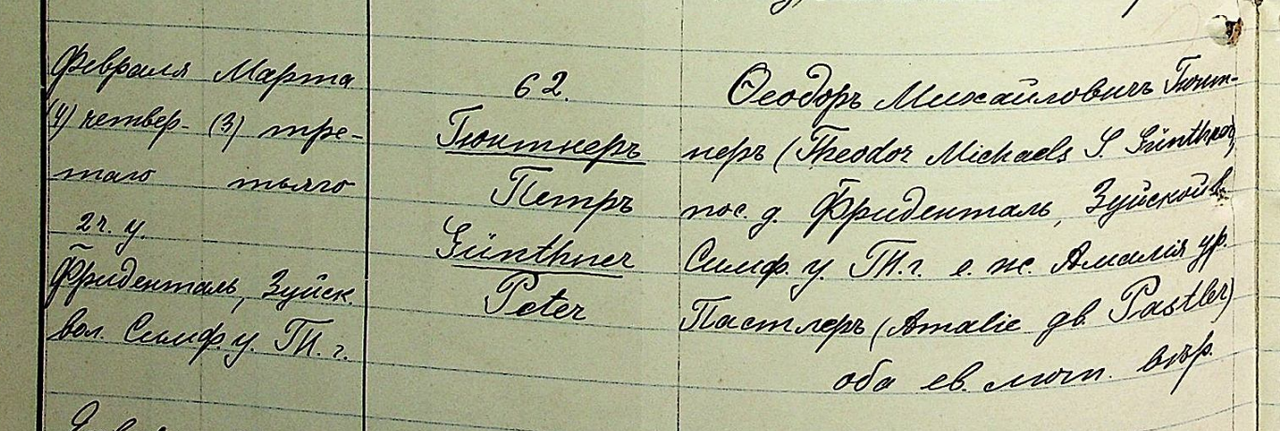 Февраля Марта
(4) четвер- (3) тре-
таго тьяго
2 ч. у.
Фриденталь, Зуйск.
вол. Симф. у. Т. г.
62.
Гюнтнеръ
Петръ
Günthner
Peter
Ѳеодоръ Михайловичъ Гюнт-
неръ (Theodor Michaels S. Günthner)
пос. д. Фриденталь, Зуйской в.
Симф. у. Т. г. е. ж. Амалія ур.
Пастлеръ (Amalie gb. Pastler)
оба ев. лют. вѣр.